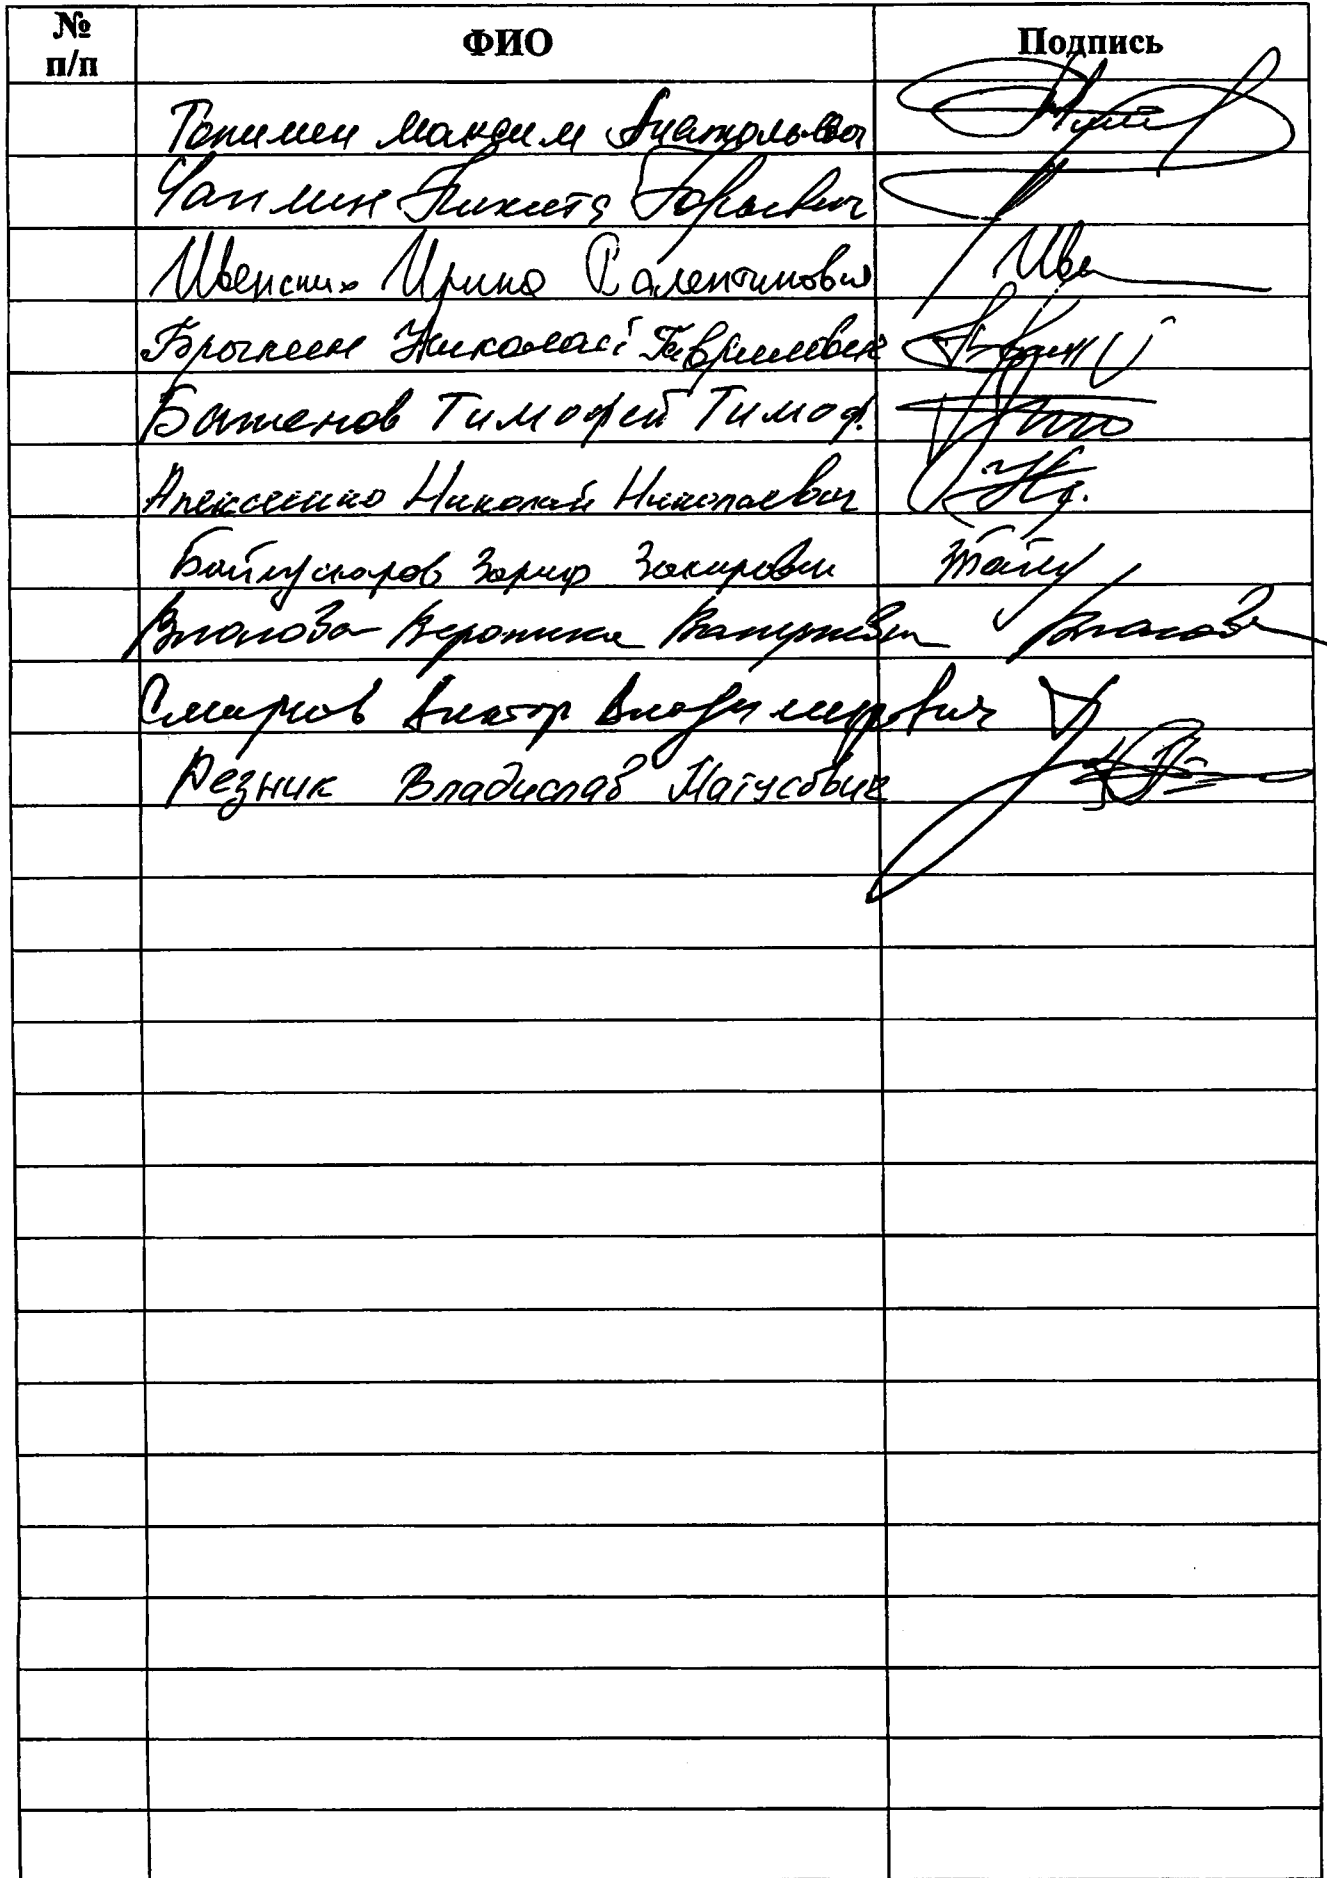 № п/п ФИО Подпись
Топилин Максим Анатольевич
Чаплин Никита Юрьевич
Ивенских Ирина Валентиновна Иве
Брыкин Николай Гаврилович
Баженов Тимофей Тимоф.
Алексеенко Николай Николаевич
Байгускаров Зариф Закирович
Власова Вероника Валерьевна Власова
Смирнов Виктор Владимирович
Резник Владислав Матусович